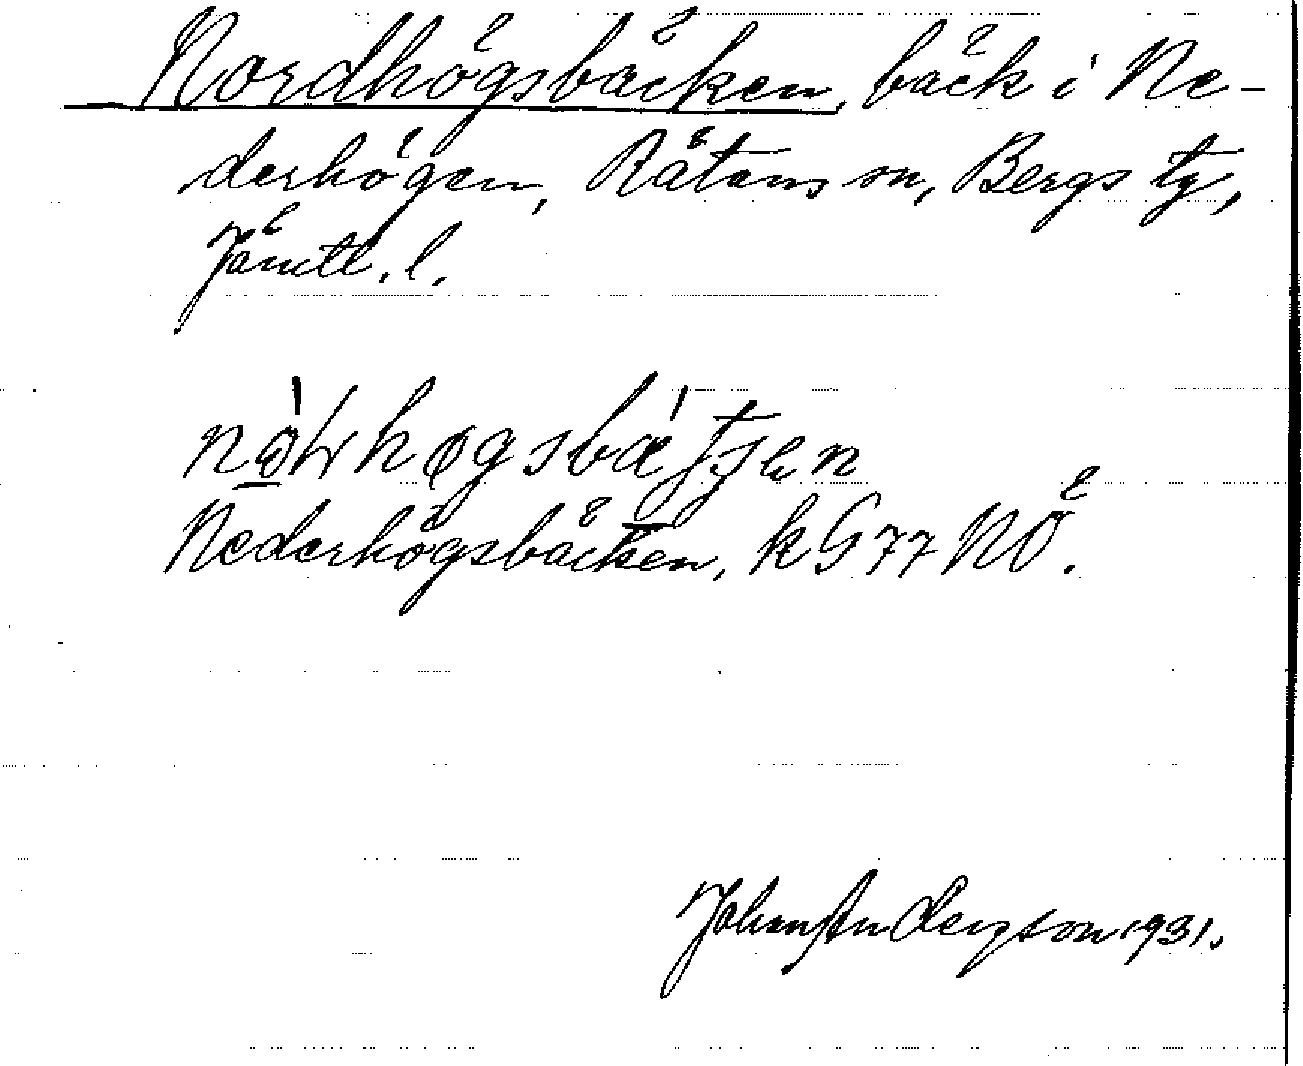 Nordhögsbäcken, bäck i Ne-
derhögen, Rätans sn, Bergs tg,
Jämtl. l.
Nederhögsbäcken, k G 77 NÖ.
Johan Anderzson 1931.